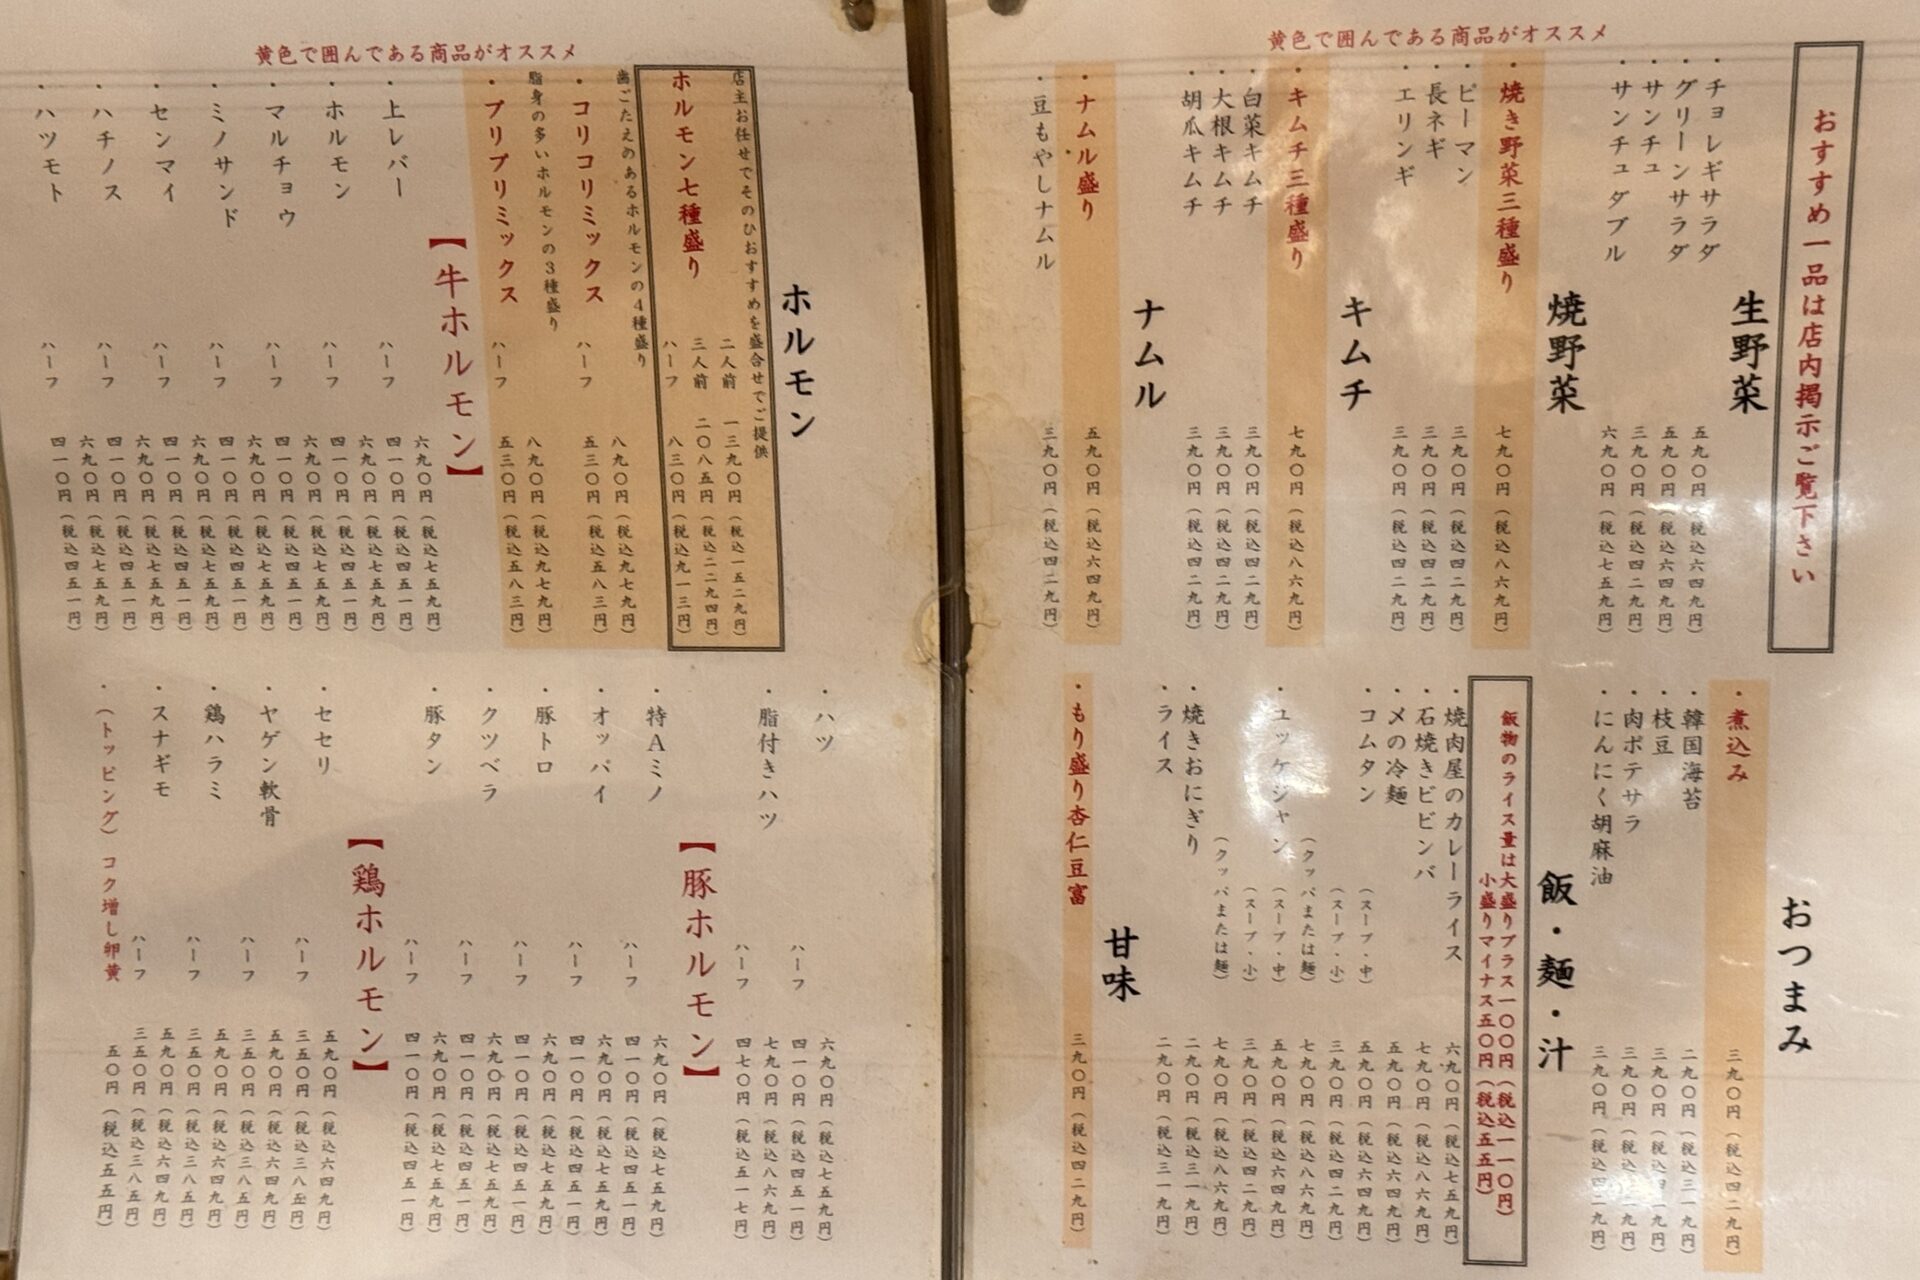 黄色で囲んである商品がオススメ
おすすめ一品は店内掲示ご覧下さい
生野菜
・チョレギサラダ 五九〇円(税込六四九円)
・グリーンサラダ 五九〇円(税込六四九円)
・サンチュ 三九〇円(税込四二九円)
・サンチュダブル 六九〇円(税込七五九円)
焼野菜
・焼き野菜三種盛り 七九〇円(税込八六九円)
・ピーマン 三九〇円(税込四二九円)
・長ネギ 三九〇円(税込四二九円)
・エリンギ 三九〇円(税込四二九円)
キムチ
・キムチ三種盛り 七九〇円(税込八六九円)
・白菜キムチ 三九〇円(税込四二九円)
・大根キムチ 三九〇円(税込四二九円)
・胡瓜キムチ 三九〇円(税込四二九円)
ナムル
・ナムル盛り 五九〇円(税込六四九円)
・豆もやしナムル 三九〇円(税込四二九円)
おつまみ
・煮込み 三九〇円(税込四二九円)
・韓国海苔 二九〇円(税込三一九円)
・枝豆 三九〇円(税込四二九円)
・肉ポテサラ 三九〇円(税込四二九円)
・にんにく胡麻油 三九〇円(税込四二九円)
飯・麺・汁
飯物のライス量は大盛りプラス一〇〇円(税込一一〇円)
小盛りマイナス五〇円(税込五五円)
・焼肉屋のカレーライス 六九〇円(税込七五九円)
・石焼きビビンバ 七九〇円(税込八六九円)
・〆の冷麺 五九〇円(税込六四九円)
・コムタン (スープ・中) 五九〇円(税込六四九円)
(スープ・小) 三九〇円(税込四二九円)
(クッパまたは麺) 七九〇円(税込八六九円)
・ユッケジャン (スープ・中) 五九〇円(税込六四九円)
(スープ・小) 三九〇円(税込四二九円)
(クッパまたは麺) 七九〇円(税込八六九円)
・焼きおにぎり 二九〇円(税込三一九円)
・ライス 二九〇円(税込三一九円)
甘味
・もり盛り杏仁豆富 三九〇円(税込四二九円)
黄色で囲んである商品がオススメ
ホルモン
店主お任せでその日おすすめを盛合せでご提供
ホルモン七種盛り
二人前 一三九〇円(税込一五二九円)
三人前 二〇八五円(税込二二九四円)
ハーフ 八三〇円(税込九一三円)
歯ごたえのあるホルモンの4種盛り
・コリコリミックス 八九〇円(税込九七九円)
ハーフ 五三〇円(税込五八三円)
脂身の多いホルモンの3種盛り
・プリプリミックス 八九〇円(税込九七九円)
ハーフ 五三〇円(税込五八三円)
【牛ホルモン】
・上レバー 六九〇円(税込七五九円)
ハーフ 四一〇円(税込四五一円)
・ホルモン 六九〇円(税込七五九円)
ハーフ 四一〇円(税込四五一円)
・マルチョウ 六九〇円(税込七五九円)
ハーフ 四一〇円(税込四五一円)
・ミノサンド 六九〇円(税込七五九円)
ハーフ 四一〇円(税込四五一円)
・センマイ 六九〇円(税込七五九円)
ハーフ 四一〇円(税込四五一円)
・ハチノス 六九〇円(税込七五九円)
ハーフ 四一〇円(税込四五一円)
・ハツモト 六九〇円(税込七五九円)
ハーフ 四一〇円(税込四五一円)
・ハツ 六九〇円(税込七五九円)
ハーフ 四一〇円(税込四五一円)
・脂付きハツ 七九〇円(税込八六九円)
ハーフ 四七〇円(税込五一七円)
【豚ホルモン】
・特Aミノ 六九〇円(税込七五九円)
ハーフ 四一〇円(税込四五一円)
・オッパイ 六九〇円(税込七五九円)
ハーフ 四一〇円(税込四五一円)
・豚トロ 六九〇円(税込七五九円)
ハーフ 四一〇円(税込四五一円)
・クツベラ 六九〇円(税込七五九円)
ハーフ 四一〇円(税込四五一円)
・豚タン 六九〇円(税込七五九円)
ハーフ 四一〇円(税込四五一円)
【鶏ホルモン】
・セセリ 五九〇円(税込六四九円)
ハーフ 三五〇円(税込三八五円)
・ヤゲン軟骨 五九〇円(税込六四九円)
ハーフ 三五〇円(税込三八五円)
・鶏ハラミ 五九〇円(税込六四九円)
ハーフ 三五〇円(税込三八五円)
・スナギモ 五九〇円(税込六四九円)
ハーフ 三五〇円(税込三八五円)
・(トッピング)コク増し卵黄 五〇円(税込五五円)